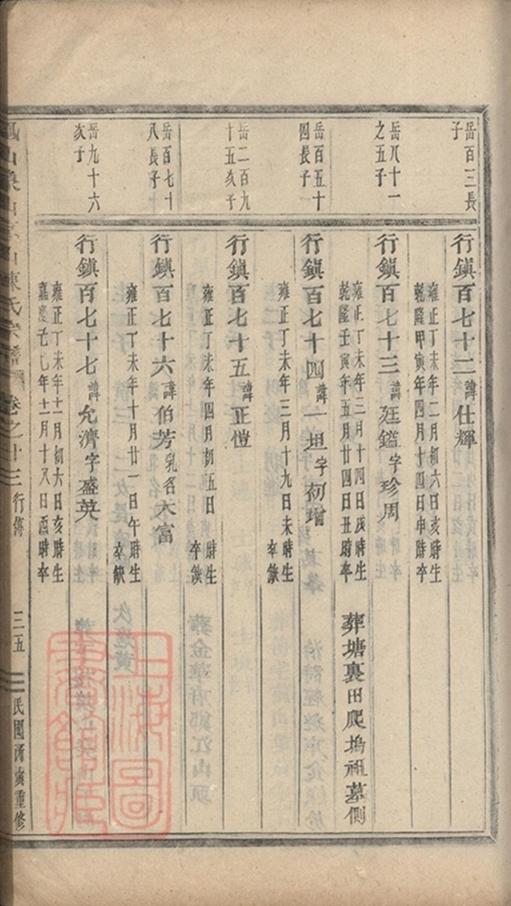 岳百三長
子
行鎮百七十二諱仕輝
雍正丁未年二月初六日亥時生
乾隆甲寅年四月十四日申時卒
岳八十一
之五子
行鎮百七十三諱廷鑑字珍周
雍正丁未年三月十四日辰時生
乾隆壬寅年五月廿四日丑時卒
葬塘裏田爬塢祖墓側
岳百五十
四長子
行鎮百七十四諱一坦字初增
雍正丁未年三月十九日未時生
卒缺
岳二百九
十五次子
行鎮百七十五諱正愷
雍正丁未年四月初五日時生
卒缺
岳百七十
八長子
行鎮百七十六諱伯芳乳名大富
雍正丁未年十月廿一日午時生
卒缺
岳九十六
次子
行鎮百七十七諱允濟字盛英
雍正丁未年十一月初六日亥時生
嘉慶 年十一月十八日酉時卒
陳氏宗譜
卷之十三
行傳
三五
民國 重修